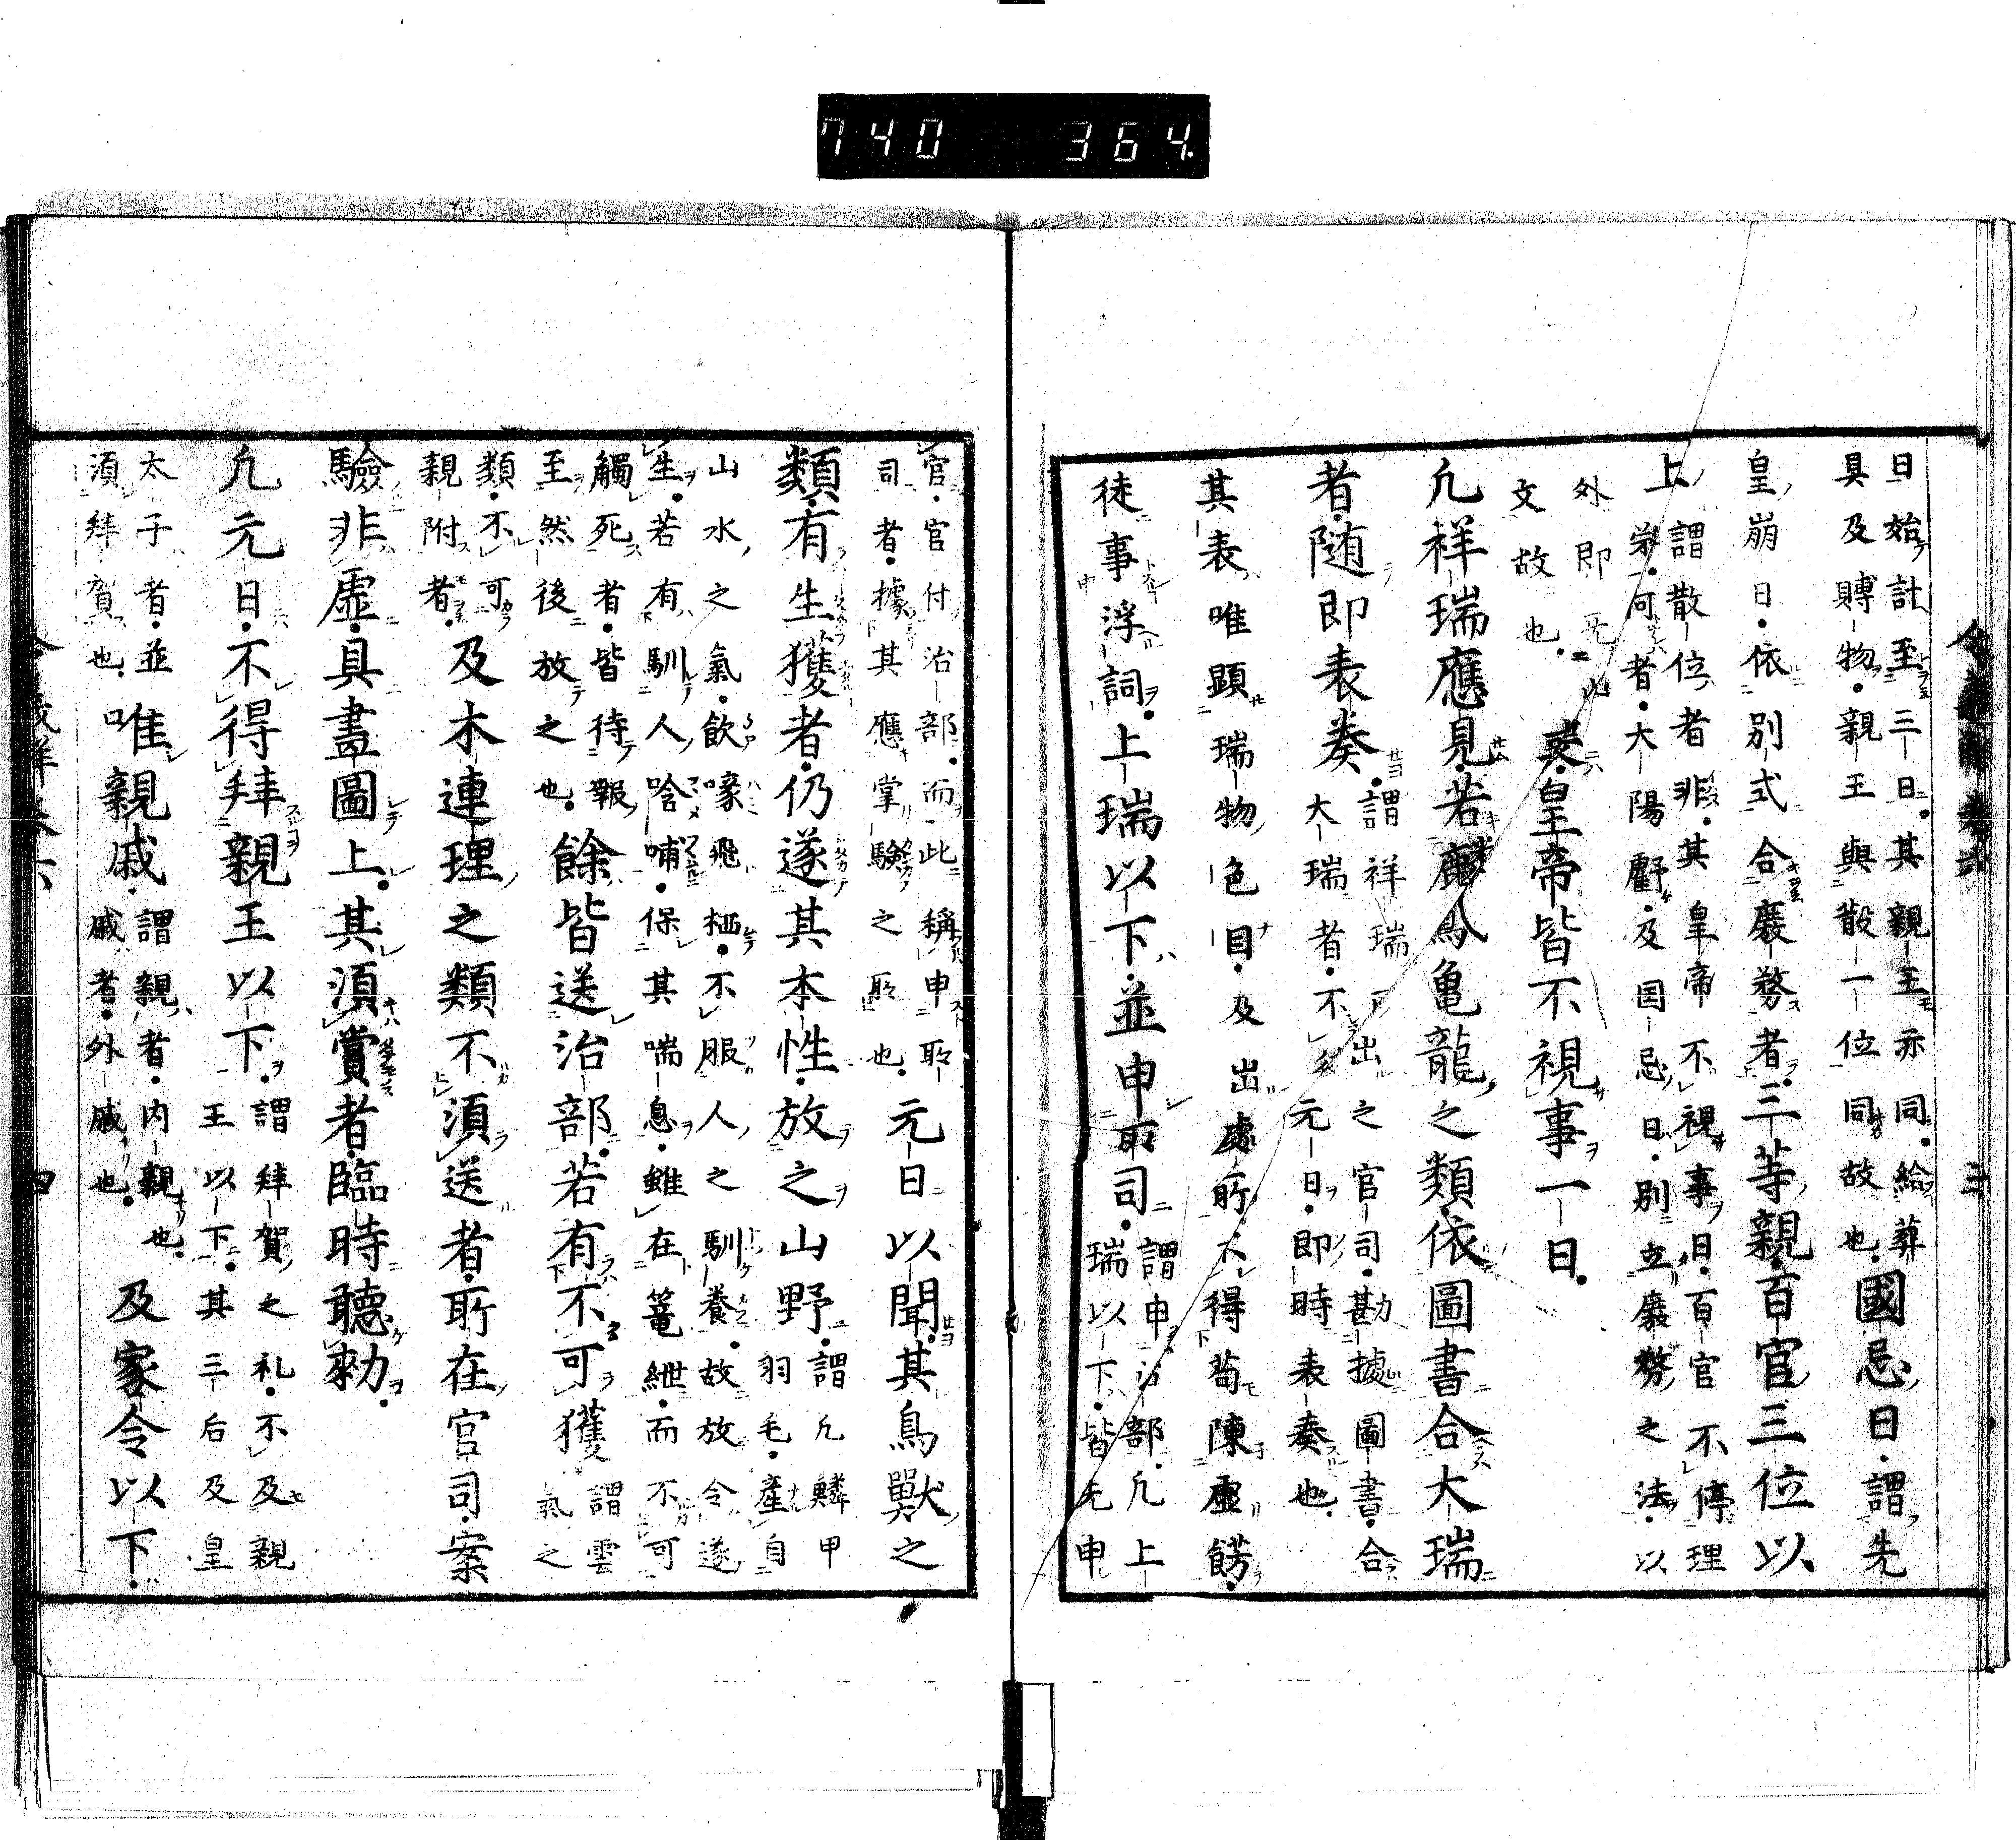 740 364
日始計至三日其親王亦同給葬
具及賻物親王與散一位同故也國忌日謂先
皇崩日依別式合廢務者三等親百官三位以
上謂散位者非其皇帝不視事日百官不停理
務何者大陽虧及国忌日別立廢務之法以
外即无
文故也
皇帝皆不視事一日
凢祥瑞應見若麟鳳亀龍之類依圖書合大瑞
者随即表奏謂祥瑞出之官司勘據圖書合
大瑞者不元日即時表奏也
其表唯顕瑞物色目及出處所不得苟陳虚餝
徒事浮詞上瑞以下並申所司謂申治部凢上
瑞以下皆无申
官官付治部而此稱申所
司者據其應掌驗之所也元日以聞其鳥獸之
類有生獲者仍遂其本性放之山野謂凢鱗甲
羽毛産自
山水之氣飲喙飛栖不服人之馴養故放令遂
生若有馴人唅哺保其喘息雖在篭紲而不可
觸死者皆待報
至然後放之也餘皆送治部若有不可獲謂雲
氣之
類不可
親附者及木連理之類不須送者所在官司案
驗非虚具畫圖上其須賞者臨時聽勅
凢元日不得拜親王以下謂拜賀之礼不及親
王以下其三后及皇
太子者並
須拜賀也唯親戚謂親者内親也
戚者外戚也及家令以下
三
四